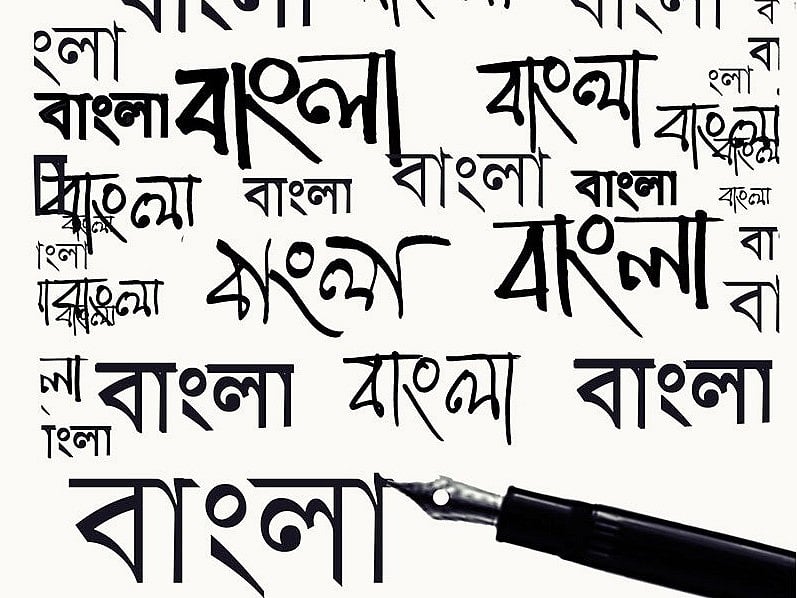 বাংলা বাংলা বাংলা
ংলা
বাংলা বাংলা বাংলা ংলা
বাংলা বাংলা
বাংলা বাংলা বাংলা বাংলা বাংলা
বাংলা
াংলা বাংলা বাংলা বা
বাংলা বা
বাংলা
লা বাংলা বাংলা বাংলা
াংলা
বাংলা